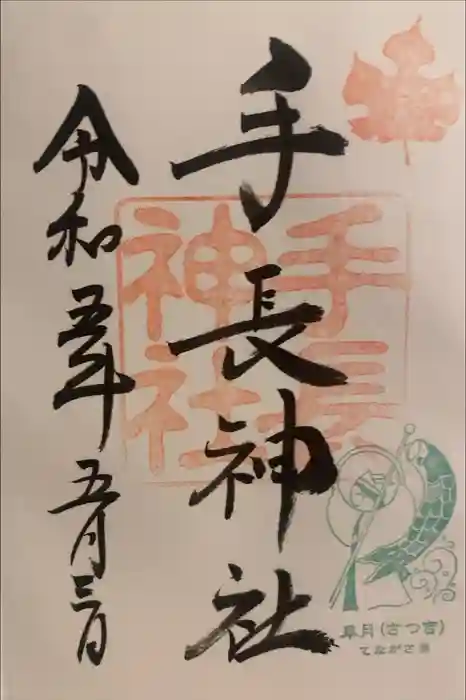 手長神社
令和五年五月三日
手長
神社
皐月(さつ吉)
てながさま